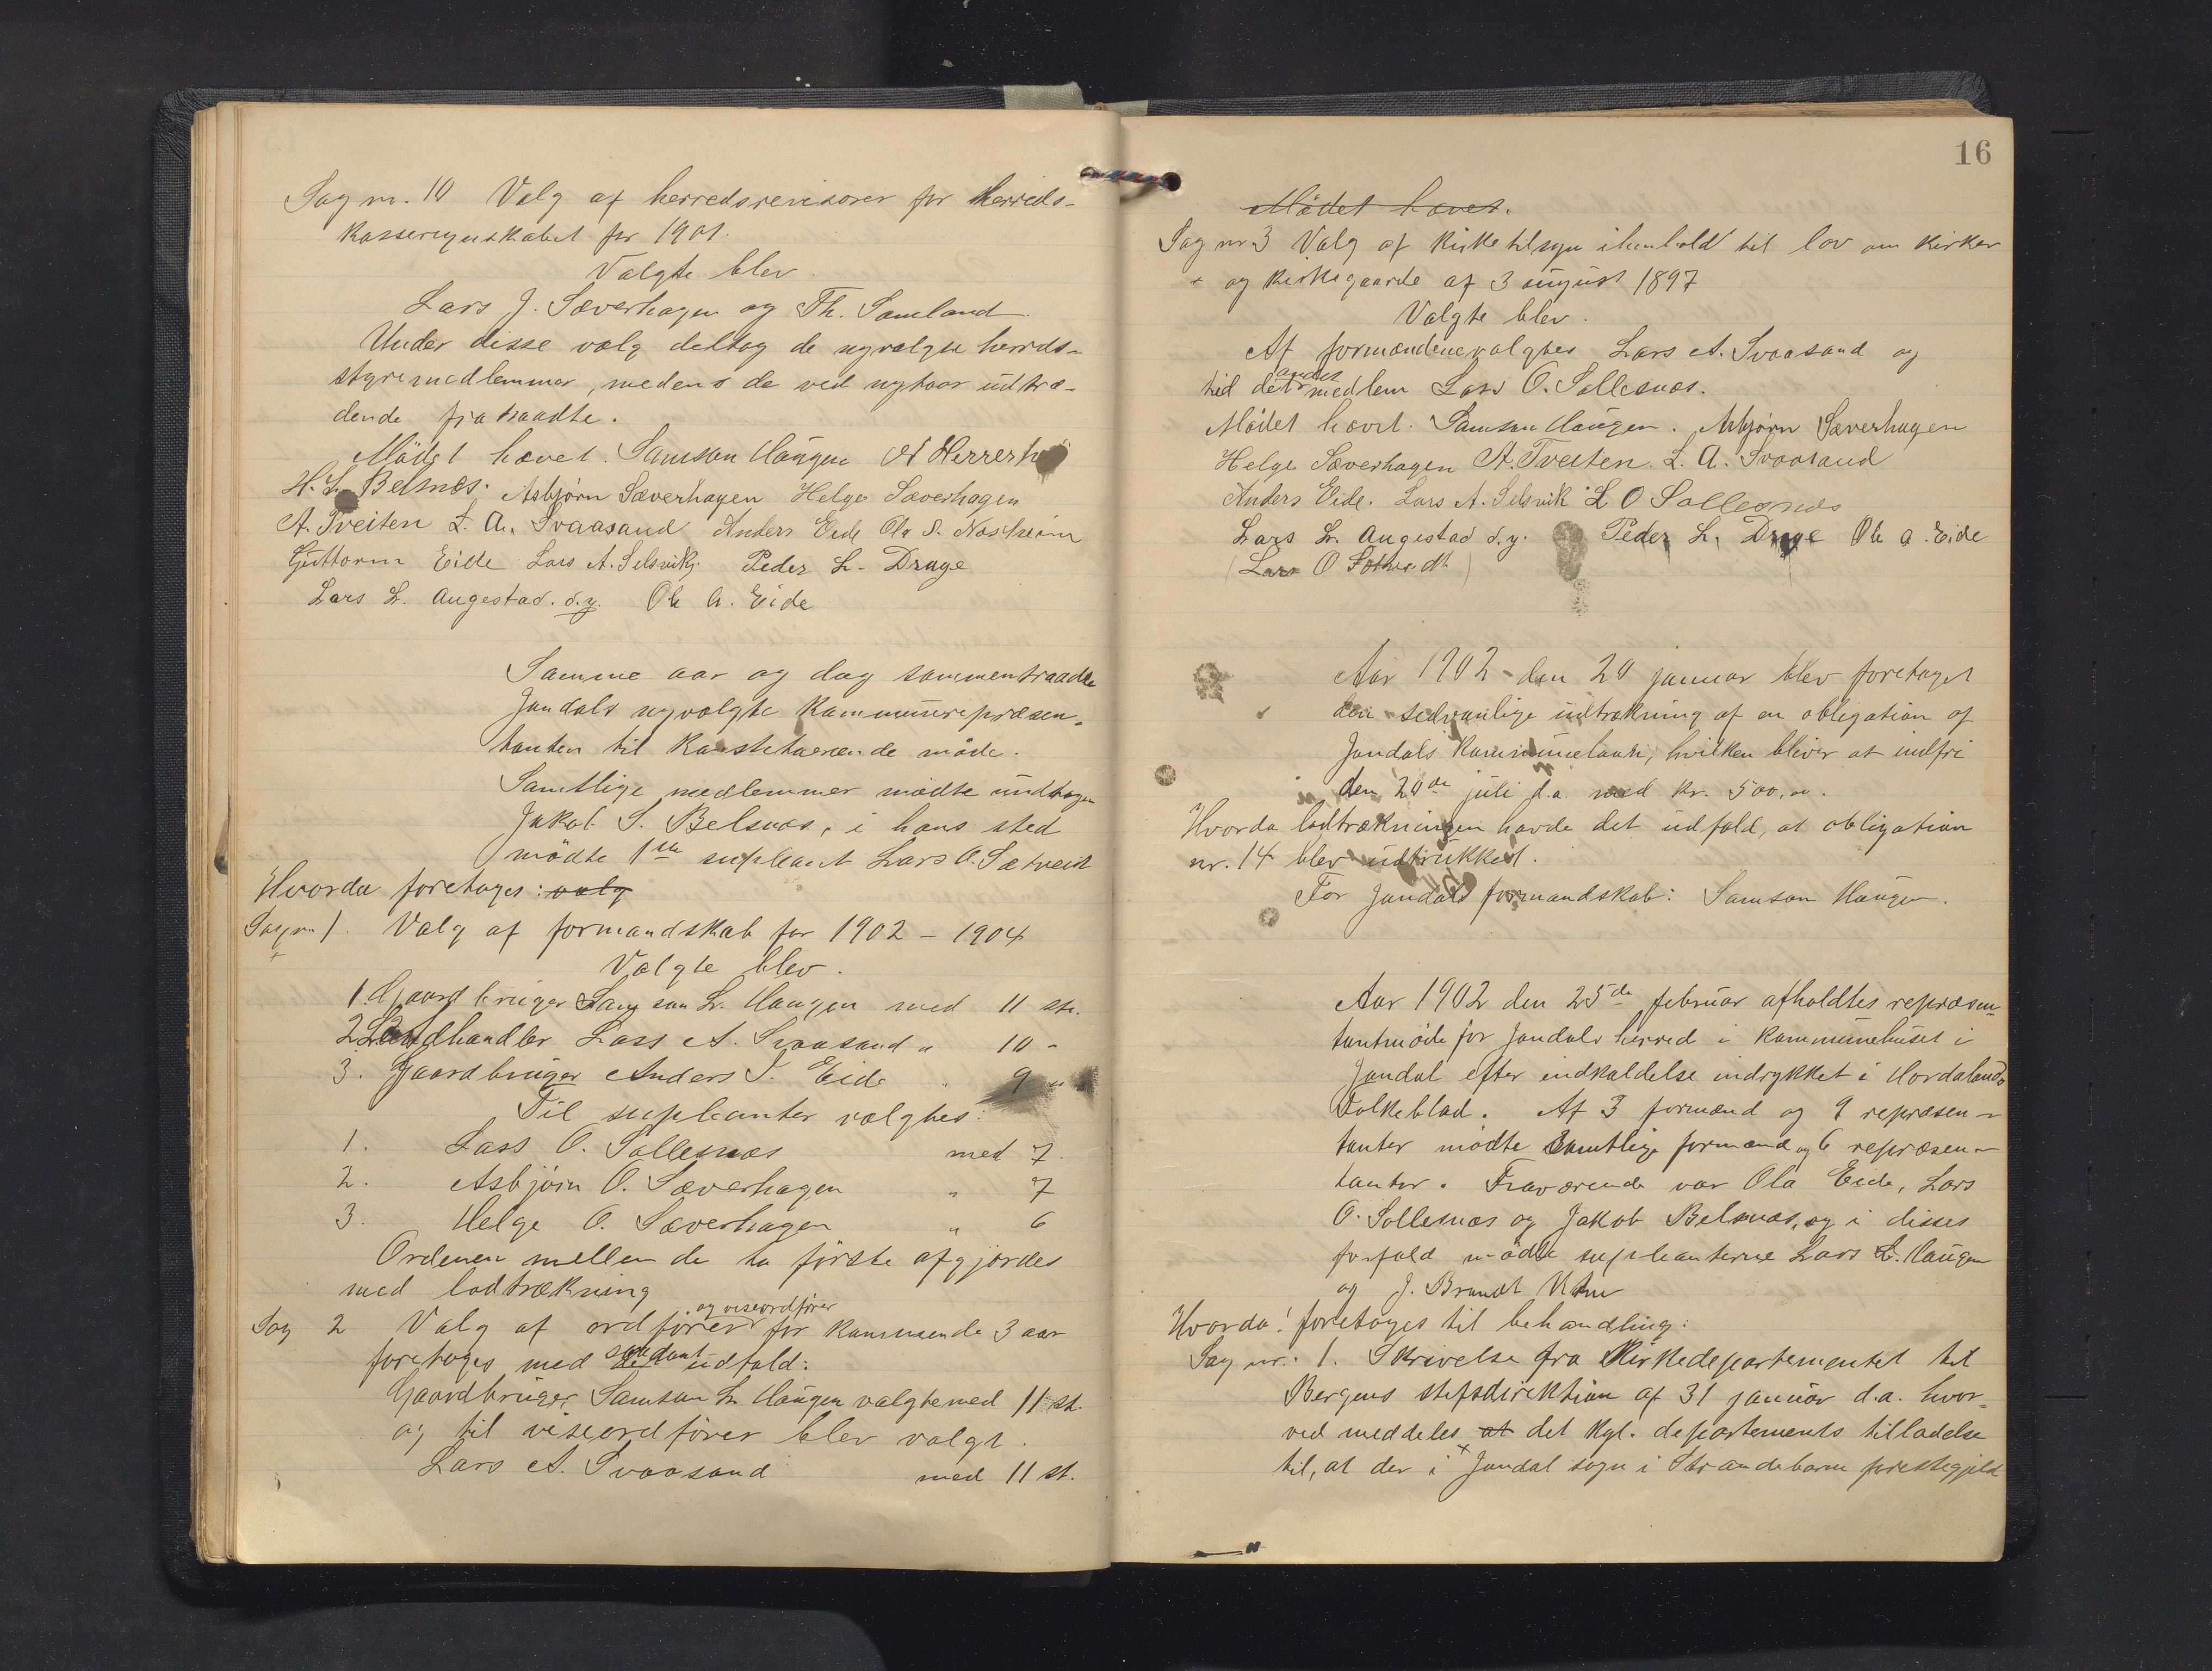 Sag nr. 10 Valg af herredsrevisorer for herreds-
kasseregnskabet for 1901.
Valgte blev.
Lars J. Sæverhagen og Th. Samland.
Under disse valg deltog de nyvalgte herreds-
styremedlemmer, medens de ved nytaar udtræ-
dende fratraadte.
Mödet hævet. Samson Haugen
H. L. Belsnes. Asbjørn Sæverhagen Helge Sæverhagen
A. Tveiten L. A. Svaasand Anders Eide Ola S. Næsheim
Guttorm Eide Lars A. Selsvik. Peder L. Drage
Lars L. Augestad. d.y. Ole A. Eide
Samme aar og dag sammentraadte
Jondals nyvalgte kommunerepræsen-
tanter til konstituerende möde.
Samtlige medlemmer mödte undtagen
Jakob S. Belsnæs, i hans sted
mödte 1ste supleant Lars O. Sætveit
Hvorda foretoges: valg
Sag nr. 1. Valg af formandskab for 1902 - 1904
Valgte blev.
1. Gaardbruger Samson L. Haugen med 11 st.
2. Landhandler Lars A. Svaasand " 10 -
3. Gaardbruger Anders S. Eide " 9 "
Til supleanter valgtes:
1. Lars O. Sollesnæs med 7.
2. Asbjörn O. Sæverhagen " 7
3. Helge O. Sæverhagen " 6
Ordenen mellem de to förste afgjordes
med lodtrækning
og viseordförer
Sag 2 Valg af ordförer for kommende 3 aar
foretoges med saadant udfald:
Gaardbruger Samson L. Haugen valgte med 11 st.
og til viseordförer blev valgt.
Lars A. Svaasand med 11 st.
16
Mödet hævet.
Sag nr 3 Valg af kirketilsyn i henhold til lov om kirker
og kirkegaarde af 3 august 1897
Valgte blev.
Af formændene valgtes Lars A. Svaasand og
andet
til det medlem Lars O. Sollesnæs.
Mödet hævet. Samson Haugen. Asbjørn Sæverhagen
Helge Sæverhagen A. Tveiten. L. A. Svaasand
Anders Eide. Lars A. Selsvik L O Sollesnes
Lars L. Augestad d.y. Peder L. Drage Ole A. Eide
(Lars O Sætveidt)
Aar 1902 - den 20 januar blev foretaget
den sedvanlige udtrækning af en obligation af
Jondals kommunelaan, hvilken bliver at indfri
den 20de juli d.a. med kr. 500,00.
Hvorda lodtrækningen havde det udfald, at obligation
nr. 14 blev udtrukket.
For Jondals formandskab: Samson Haugen.
Aar 1902 den 25de februar afholdtes repræsen-
tantmöde for Jondals herred i kommunehuset i
Jondal efter indkaldelse indrykket i Hordalands
Folkeblad. Af 3 formænd og 9 repræsen-
tanter mödte samtlige formænd og 6 repræsen-
tanter. Fraværende var Ola Eide, Lars
O. Sollesnæs og Jakob Belsnæs, og i disses
forfald mödte supleanterne Lars L. Haugen
og J. Brandt Utne
Hvorda! foretoges til behandling:
Sag nr. 1. Skrivelse fra Kirkedepartementet til
Bergens stiftsdirektion af 31 januar d.a. hvor-
ved meddeles at det kgl. departements tilladelse
til, at der i Jondal sogn i Strandebarm prestegjeld